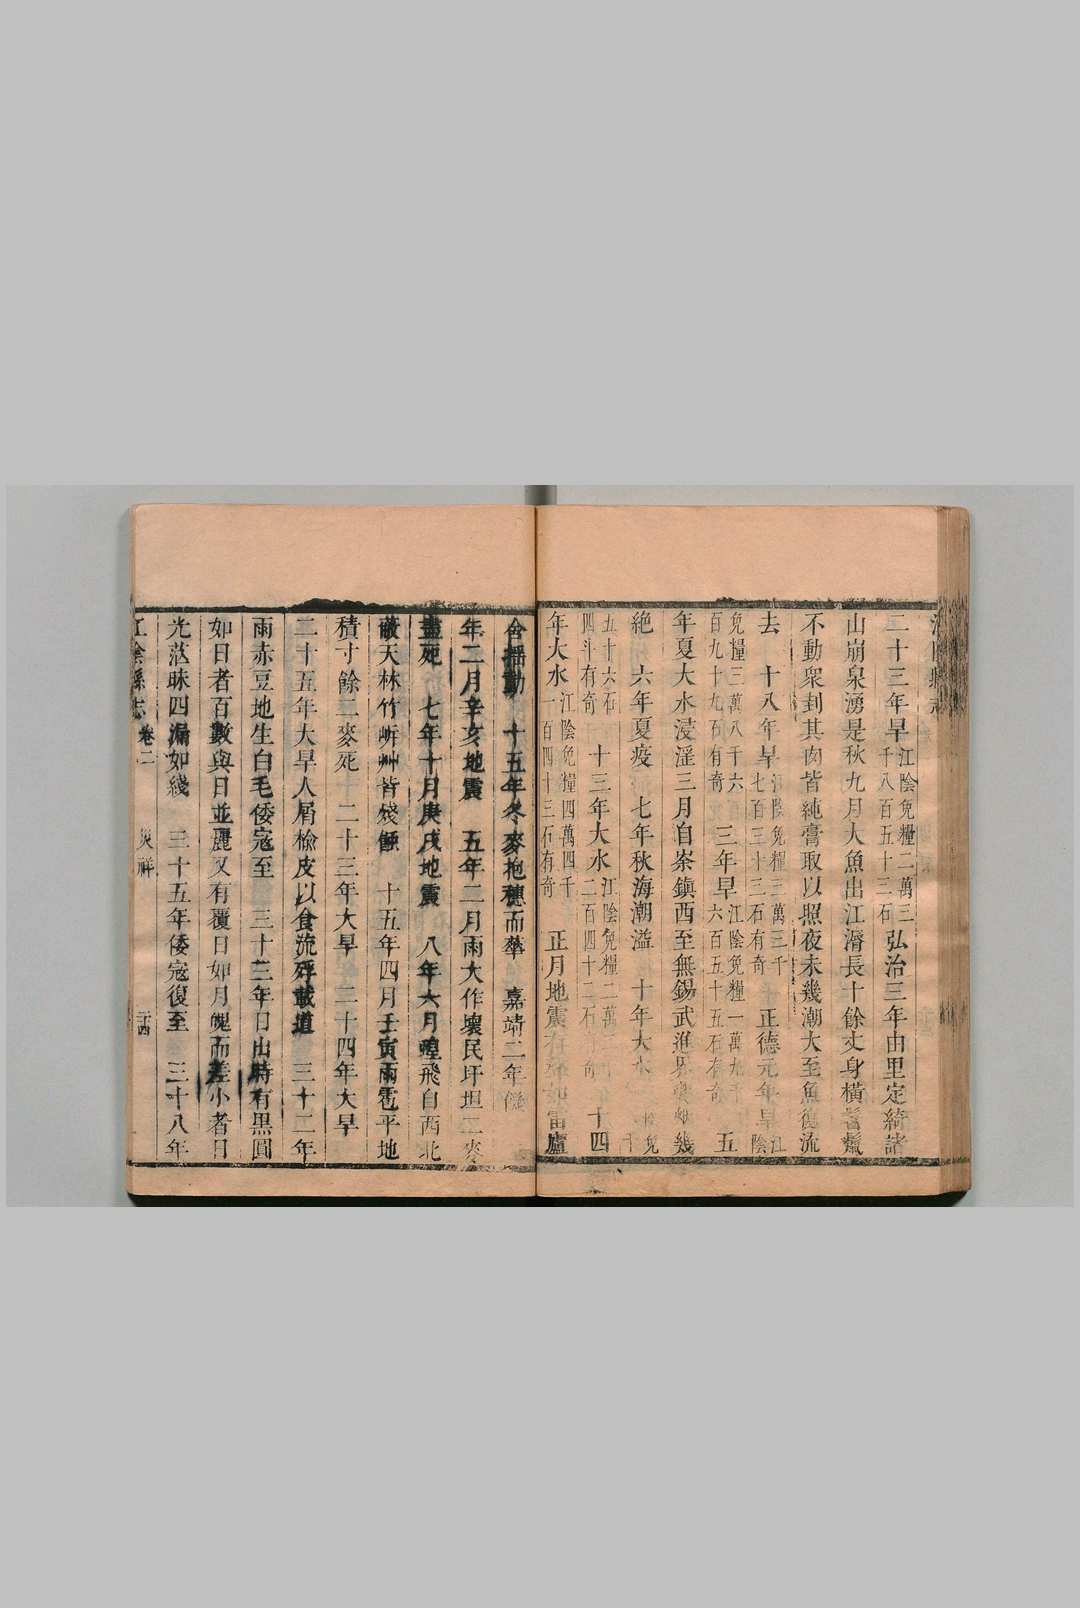 二十三年旱江陰免糧二萬三千八百五十三石弘治三年由里定綺諸
山崩泉湧是秋九月大魚出江濱長十餘丈身橫鬐鬣
不動衆刲其肉皆純膏取以照夜未幾潮大至魚復流
去 十八年旱江陰免糧三萬三千七百三十三石有奇 正德元年旱江陰
免糧三萬八千六百九十九石有奇 三年旱江陰免糧一萬九千六百五十五石有奇 五
年夏大水浸淫三月自崇鎮西至無錫武進界 烟幾
絶 六年夏疫 七年秋海潮溢 十年大水 免
五十六石四斗有奇 十三年大水江陰免糧二萬 二百四十二石 奇 十四
年大水江陰免糧四萬四千一百四十三石有奇 正月地震有聲如雷廬
舍搖動 十五年冬麥抱穗而華 嘉靖二年饑
年二月辛亥地震 五年二月雨大作壞民圩坦二麥
盡死 七年十月庚戌地震 八年六月蝗飛自西北
蔽天林竹岍艸皆殘蝕 十五年四月壬寅雨雹平地
積寸餘二麥死 二十三年大旱 二十四年大旱
二十五年大旱人屑楡皮以食流殍載道 三十二年
雨赤豆地生白毛倭寇至 三十三年日出時有黒圓
如日者百數與日並麗又有覆日如月魄而差小者日
光蒞昧四漏如綫 三十五年倭寇復至 三十八年
江陰縣志 卷二 災祥 二十四